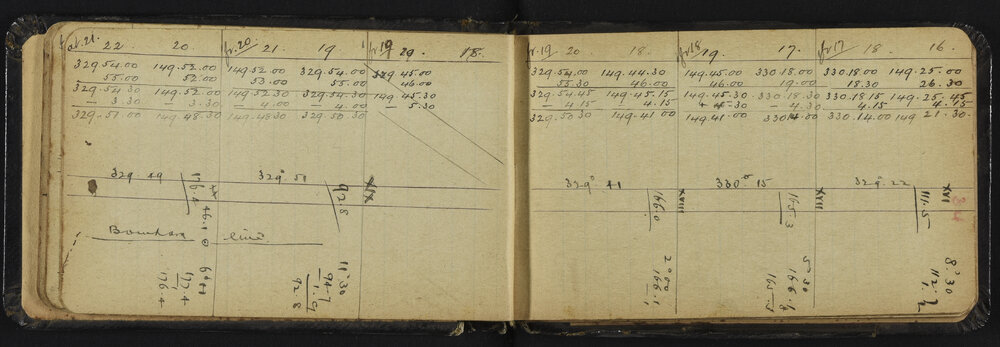 at 21. 22 20. fr. 20. 21. 19 fr 19 29. 18.
329.54.00 149.52.00 149.52.00 329.54.00 329.45.00
55.00 52.00 53.00 55.00 46.00
329.54.30 149.52.00 149.52.30 329.54.30 149.45.30
- 3.30 - 3.30 - 4.00 - 4.00 - 5.30
329.51.00 149.48.30 149.48.30 329.50.30
329.49 176.4 329°.51 92.8 XIX
46.1
Boundary line
6°44
177.4
1
176.4
11°30
94.7
1.9
92.8
fr.19. 20. 18. fr 18 19. 17. fr 17 18. 16.
329.54.00 149.44.30 149.45.00 330.18.00 330.18.00 149.25.00
55.30 46.00 46.00 19.00 18.30 26.30
329.54.45 149.45.15 149.45.30 330.18.30 330.18.15 149.25.45
- 4.15 - 4.15 4.30 - 4.30 4.15 4.15
329.50.30 149.41.00 149.41.00 330.14.00 330.14.00 149 21.30
329°.41 166.0 XVIII 330°.15 165.3 XVII 329°.22 111.5 XVI
34
2°00
166.1
5°30
8°30